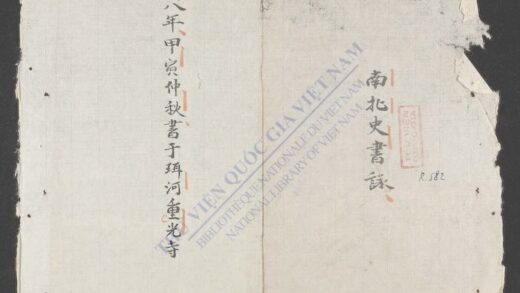 南北史書詠
R.582
八年甲寅仲秋書于珥河重光寺
THƯ VIỆN QUỐC GIA VIỆT NAM
BIBLIOTHÈQUE NATIONALE DU VIETNAM
NATIONAL LIBRARY OF VIETNAM